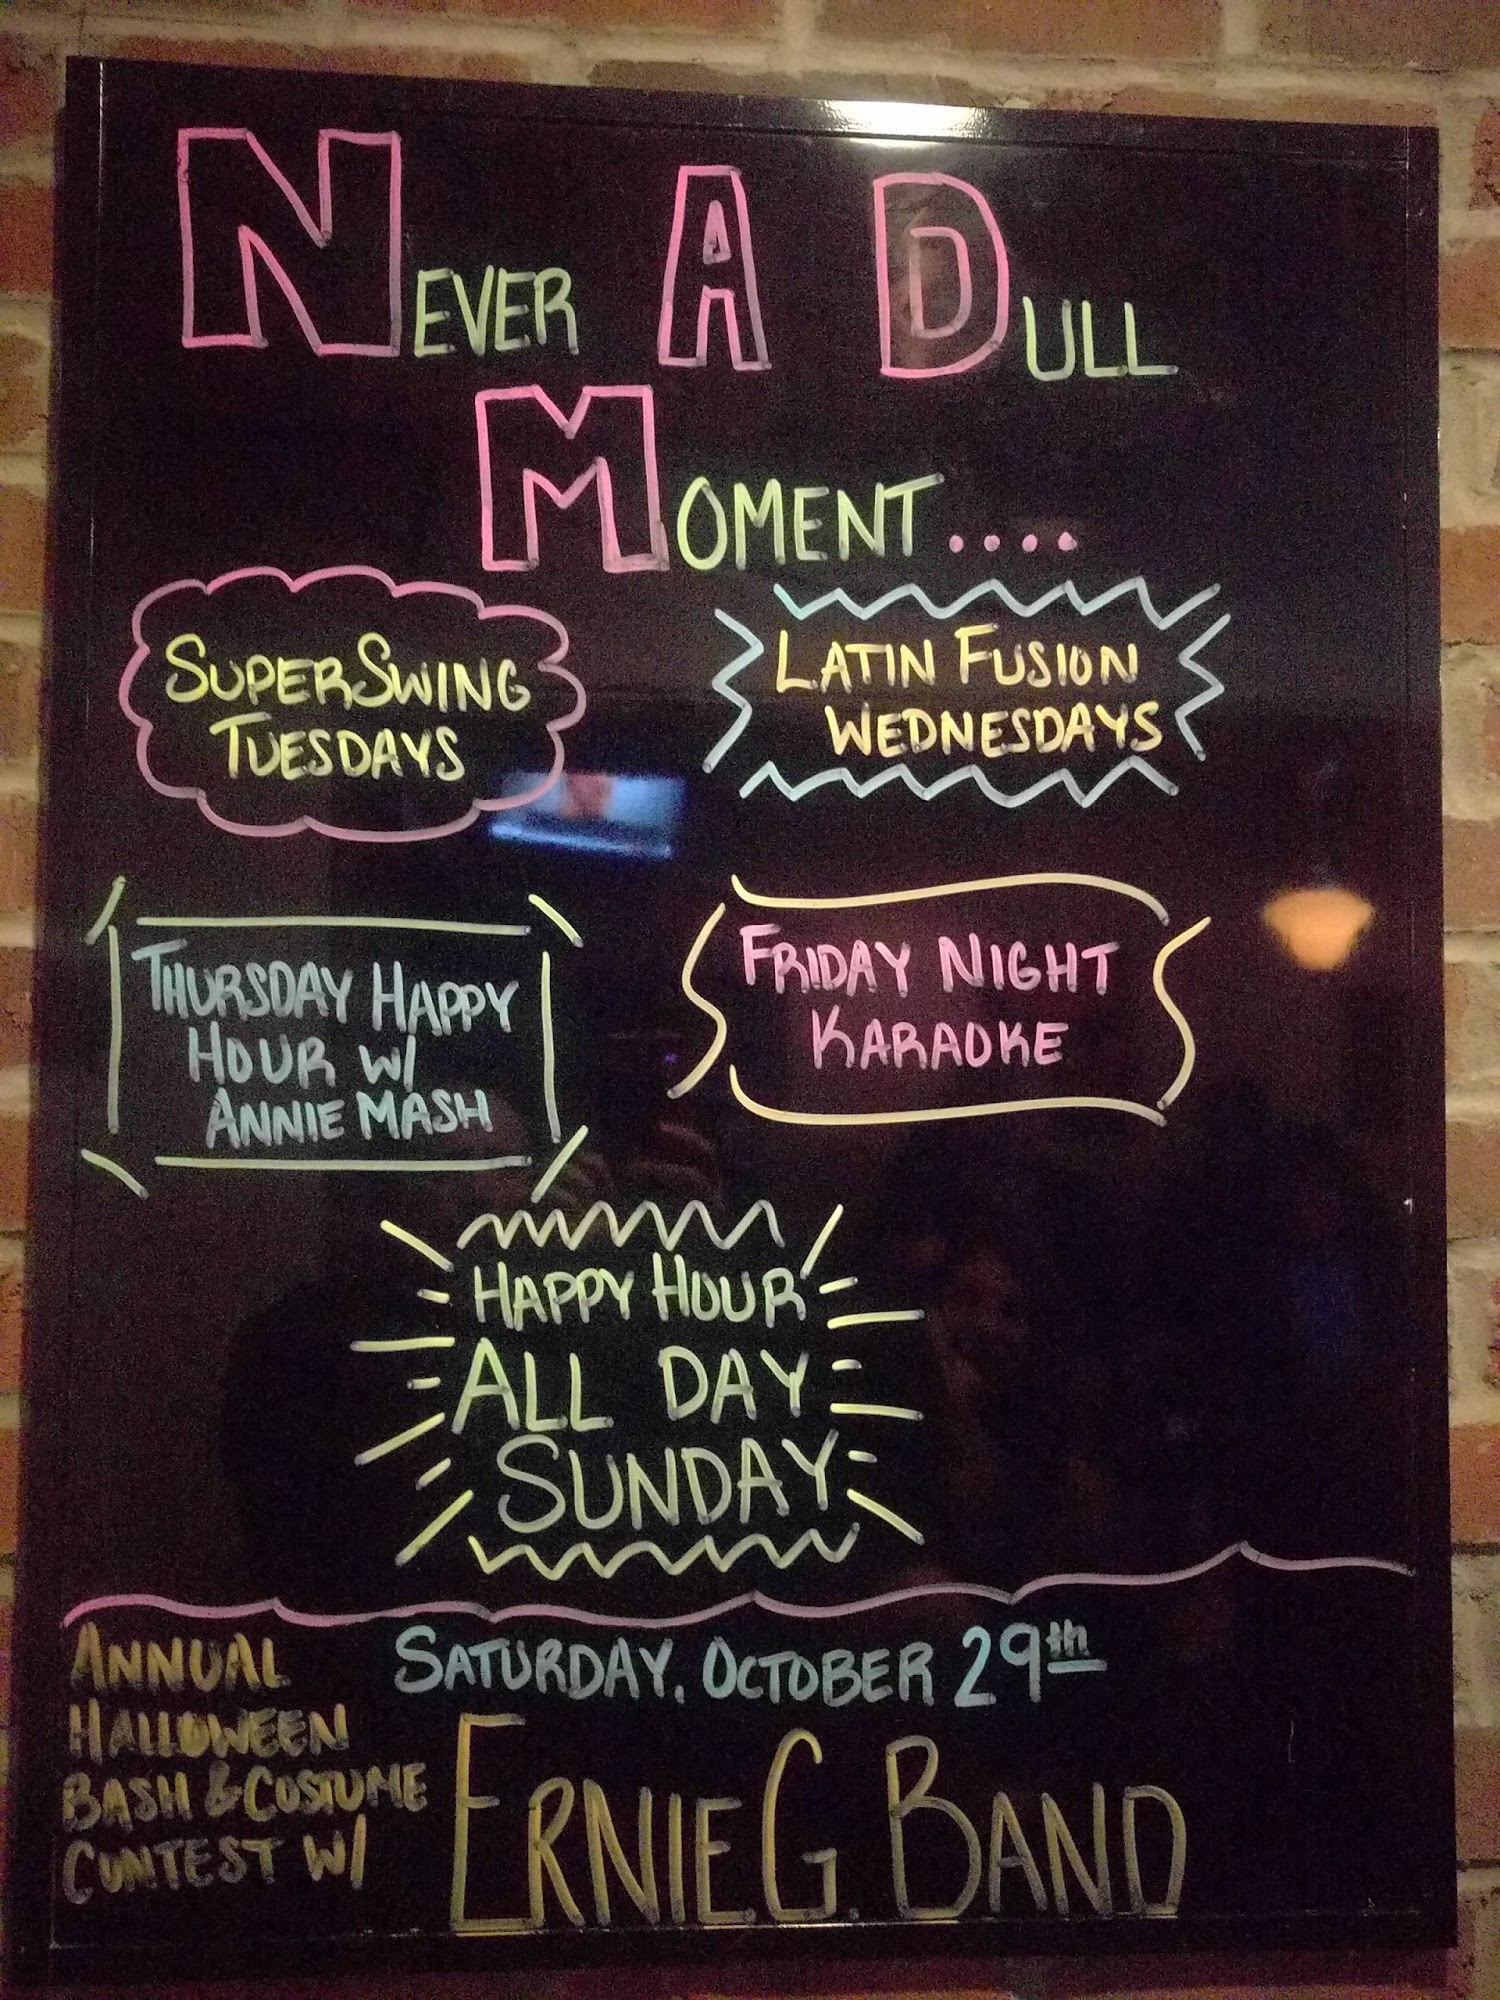 NEVER A DULL
MOMENT....
SUPERSWING
TUESDAYS
LATIN FUSION
WEDNESDAYS
THURSDAY HAPPY
HOUR W/
ANNIE MASH
FRIDAY NIGHT
KARAOKE
HAPPY HOUR
ALL DAY
SUNDAY
ANNUAL
HALLOWEEN
BASH & COSTUME
CONTEST W/
SATURDAY, OCTOBER 29th
ERNIE G. BAND